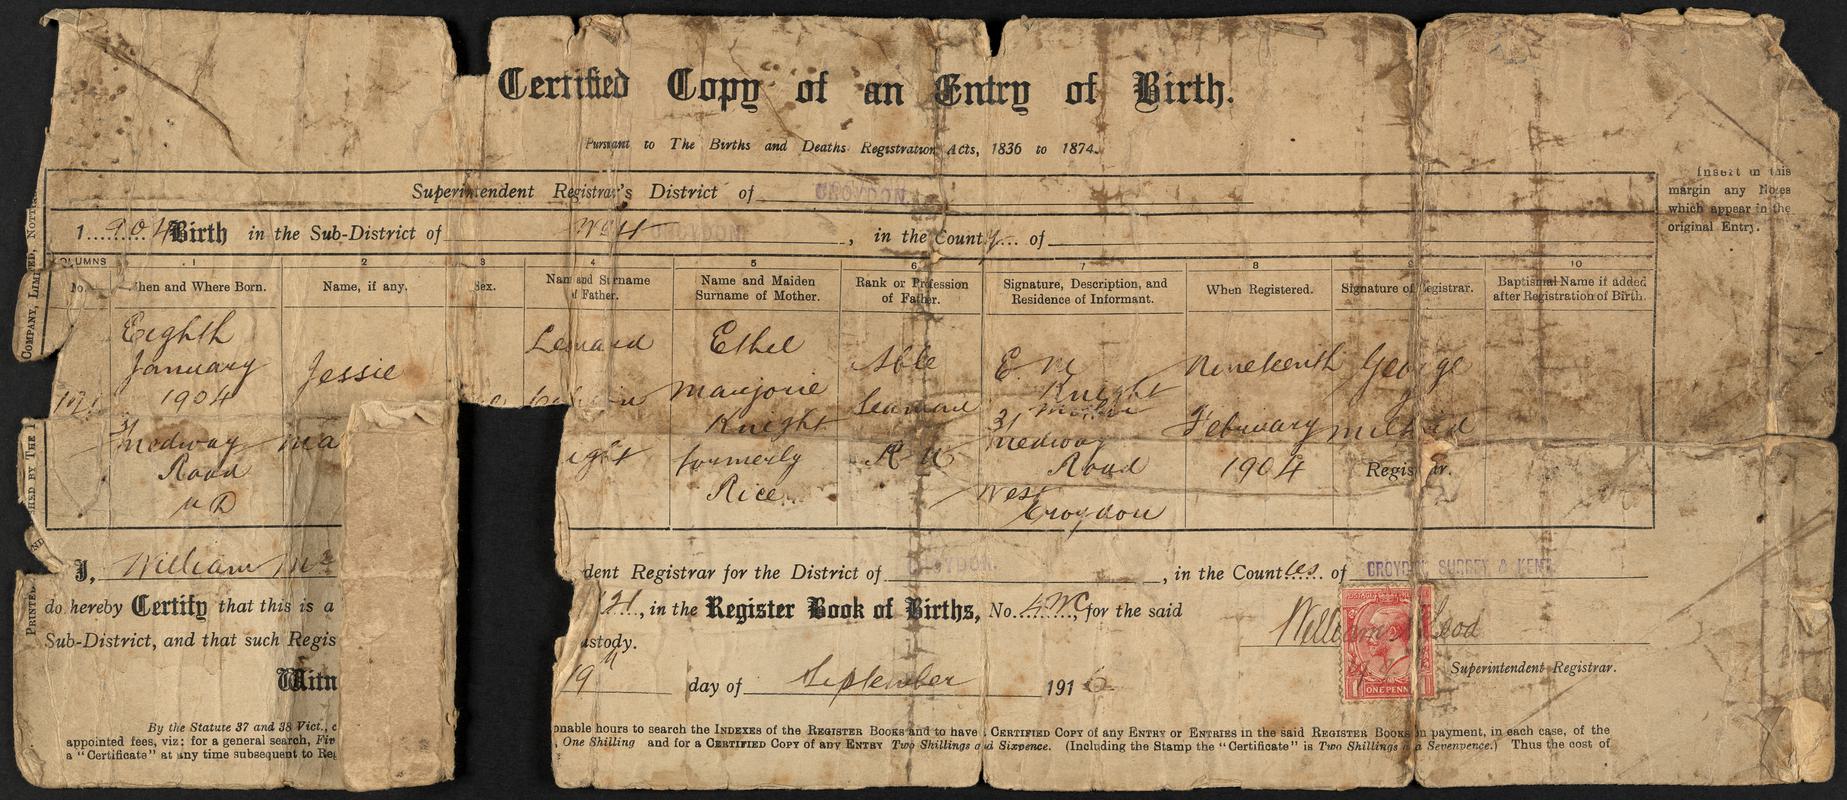 Certified Copy of an Entry of Birth.
Pursuant to The Births and Deaths Registration Acts, 1836 to 1874.
Superintendent Registrar's District of CROYDON.
1904 Birth in the Sub-District of , in the County of
Insert in this
margin any Notes
which appear in the
original Entry.
COLUMNS 1 2 3 4 5 6 7 8 9 10
No. When and Where Born. Name, if any. Sex. Name and Surname of Father. Name and Maiden Surname of Mother. Rank or Profession of Father. Signature, Description, and Residence of Informant. When Registered. Signature of Registrar. Baptismal Name if added after Registration of Birth.
Eighth
January
1904
31 Medway
Road
U D
Jessie
Ma
Leonard
ight
Ethel
Marjorie
Knight
formerly
Rice
Able
Seaman
R N
E. M
Knight
Mother
31 Medway
Road
West
Croydon
Nineteenth
February
1904
George
Milward
Registrar.
I, William Mc dent Registrar for the District of CROYDON. , in the Counties of CROYDON SURREY & KENT.
do hereby Certify that this is a 121, in the Register Book of Births, No. for the said
Sub-District, and that such Regis ustody.
William McLeod
Superintendent Registrar.
ONE PENNY
Witn 19th day of September 191
By the Statute 37 and 38 Vict., c onable hours to search the INDEXES of the REGISTER BOOKS and to have CERTIFIED COPY of any ENTRY or ENTRIES in the said REGISTER BOOKS on payment, in each case, of the
appointed fees, viz: for a general search, Fiv , One Shilling and for a CERTIFIED COPY of any ENTRY Two Shillings and Sixpence. (Including the Stamp the "Certificate" is Two Shillings and Sevenpence.) Thus the cost of
a "Certificate" at any time subsequent to Reg
PRINTED AND SHED BY THE COMPANY, LIMITED, NOTTI